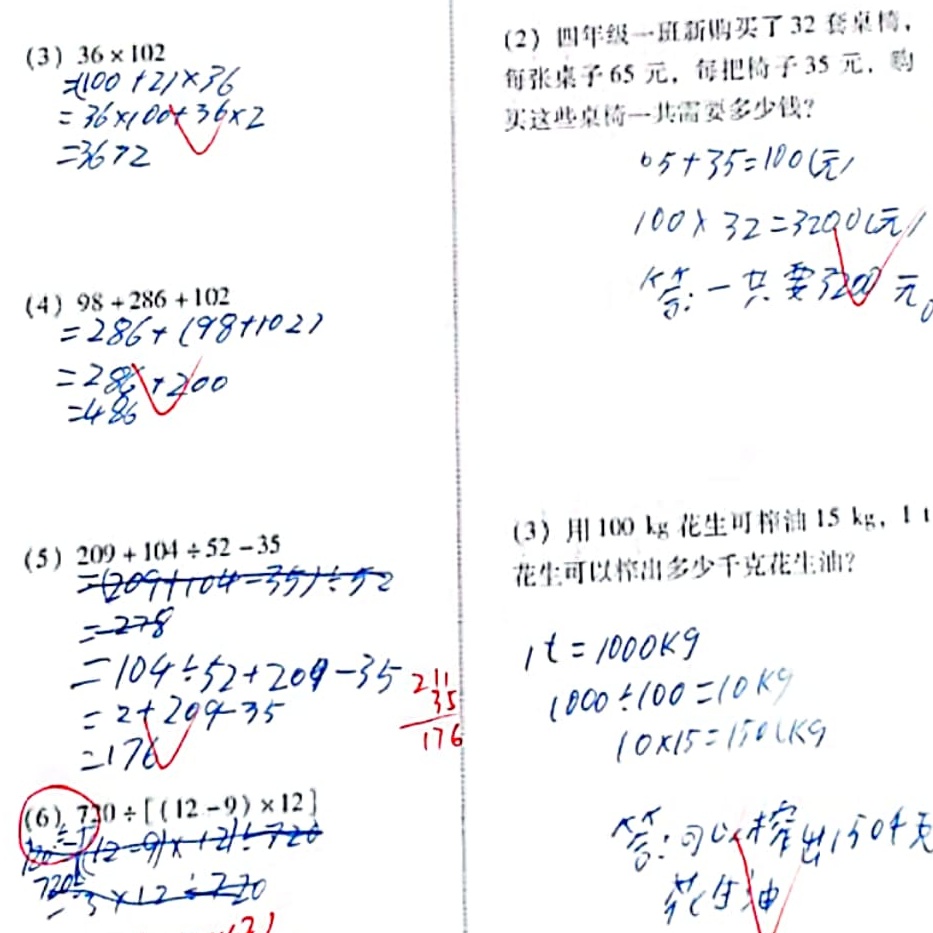 (3) 36×102
=(100+2)×36
=36×100+36×2
=3672
(4) 98+286+102
=286+(98+102)
=286+200
=486
(5) 209+104÷52-35
=(209+104-35)÷52
=278
=104÷52+209-35
=2+209-35
=176
211
35
176
(6) 720÷[(12-9)×12]
=3×12÷720
(2) 四年级一班新购买了32套桌椅，
每张桌子65元，每把椅子35元，购
买这些桌椅一共需要多少钱？
65+35=100(元)
100×32=3200(元)
答:一共要3200元。
(3) 用100 kg花生可榨油15 kg，1 t
花生可以榨出多少千克花生油？
1t=1000KG
1000÷100=10KG
10×15=150(KG
答:可以榨出150千克
花生油